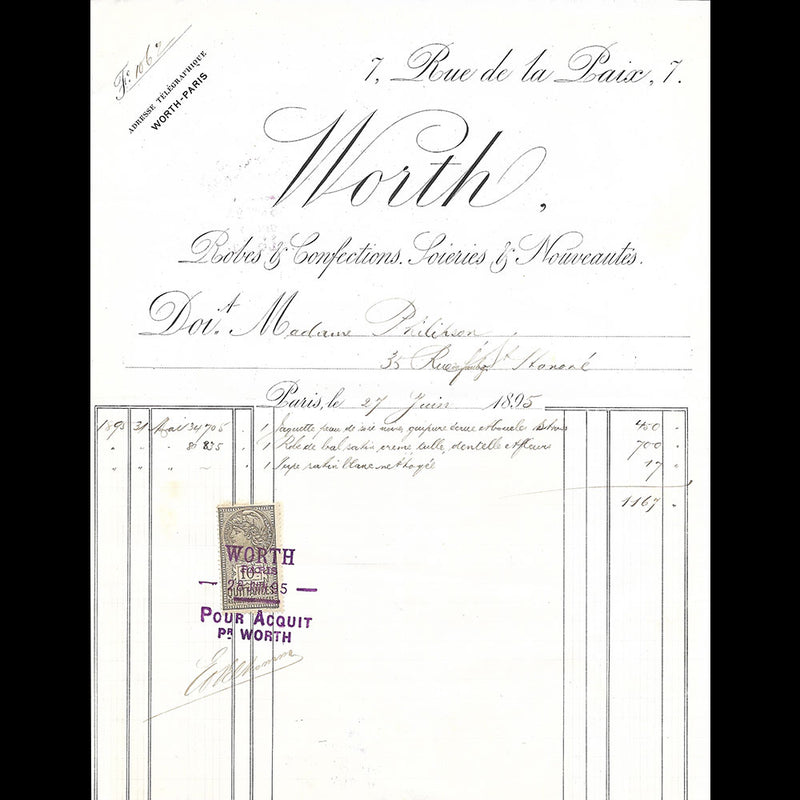 Fo. 106
ADRESSE TÉLÉGRAPHIQUE
WORTH-PARIS
7, Rue de la Paix, 7.
Worth,
Robes & Confections. Soieries, & Nouveautés.
Doit Madame Philipson
35 Rue du faubg St Honoré
Paris, le 27 Juin 1895
1895 31 Mai 34705 1 Jaquette peau de soie noire, guipure 450
" " " 8 875 1 Robe de bal satin, crème, tulle, dentelle et fleurs 700 "
" " " 1 Jupe satin blanc nettoyée 17 "
1167 "
WORTH
PARIS
10c
QUITTANCES
95
POUR ACQUIT
PR WORTH